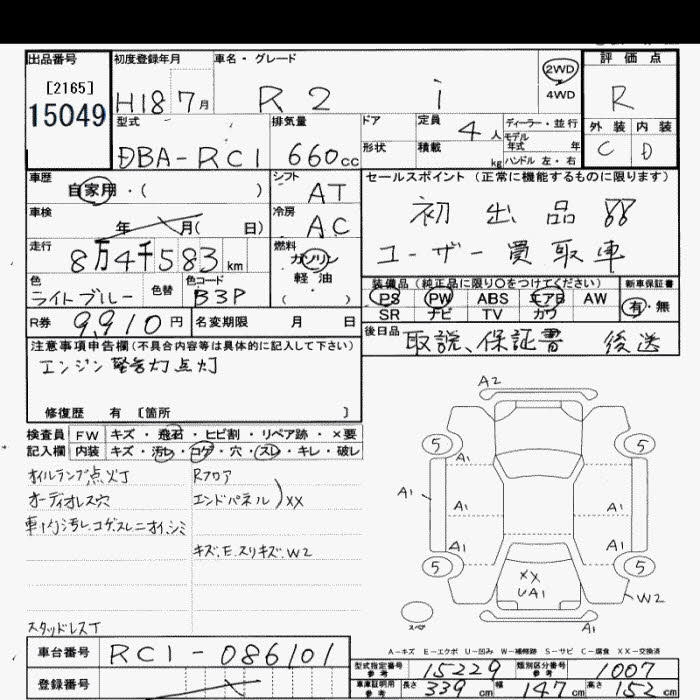 出品番号 初度登録年月 車名・グレード 2WD 評価点
[2165] 4WD
15049 H18 7月 R2 i R
型式 排気量 ドア 定員 4人 ディーラー・並行 外装 内装
モデル年式 年
形状 積載 kg ハンドル 左・右 C D
DBA-RC1 660cc
車歴 シフト セールスポイント (正常に機能するものに限ります)
自家用・( ) AT
車検 冷房 初出品
年 月( 日) AC
走行 燃料 ユーザー買取車
8万4千583km ガソリン
軽油
色 色替 色コード ( ) 装備品(純正品に限り○をつけてください) 新車保証書
ライトブルー B3P PS PW ABS エアB AW 有・無
SR ナビ TV カワ
R券 9,910円 名変期限 月 日 後日品 取説、保証書 後送
注意事項申告欄(不具合内容等は具体的に記入して下さい)
エンジン警告灯点灯
修復歴 有 [箇所 ]
検査員 FW キズ・飛石・ヒビ割・リペア跡・×要
記入欄 内装 キズ・汚れ・コゲ・穴・スレ・キレ・破レ
オイルランプ点灯 Rフロア
オーディオレス穴 エンドパネル XX
車内汚レ.コゲ.スレ.ニオイ.シミ
キズ.E.スリキズ.W2
スタッドレスT
A2
5 5
A1
A1 A1 A1
A1 A1
5 5
XX
UA1
W2
スペア
A1
A-キズ E-エクボ U-凹み W-補修跡 S-サビ C-腐食 XX-交換済
車台番号 RC1-086101
型式指定番号 参考 15229 類別区分番号 参考 1007
登録番号
車庫証明用 参考 長さ 339cm 幅 147cm 高さ 152cm